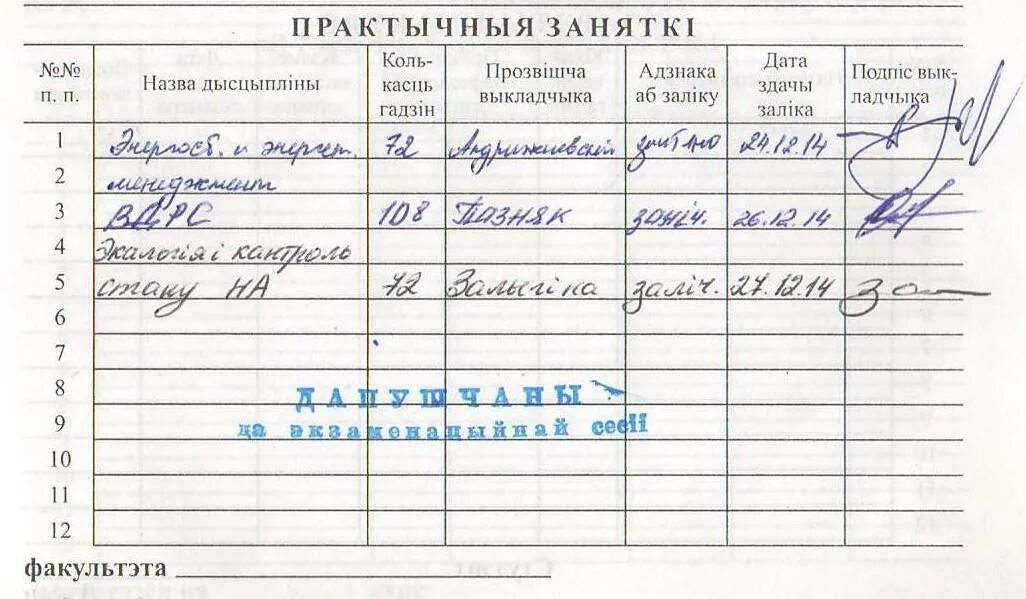 ПРАКТЫЧНЫЯ ЗАНЯТКІ
№№ п. п. Назва дысцыпліны Коль- касць гадзін Прозвішча выкладчыка Адзнака аб заліку Дата здачы заліка Подпіс вык- ладчыка
1 Энергосб. и энергет. 72 Андрижиевский 24.12.14
2 менеджмент
3 108 Пазняк заліч. 26.12.14
4 Экалогія і кантроль
5 стану НА 72 Залыгіна заліч. 27.12.14
6
7
8
ДАПУШЧАНЫ
9
да экзаменацыйнай сесіі
10
11
12
факультэта